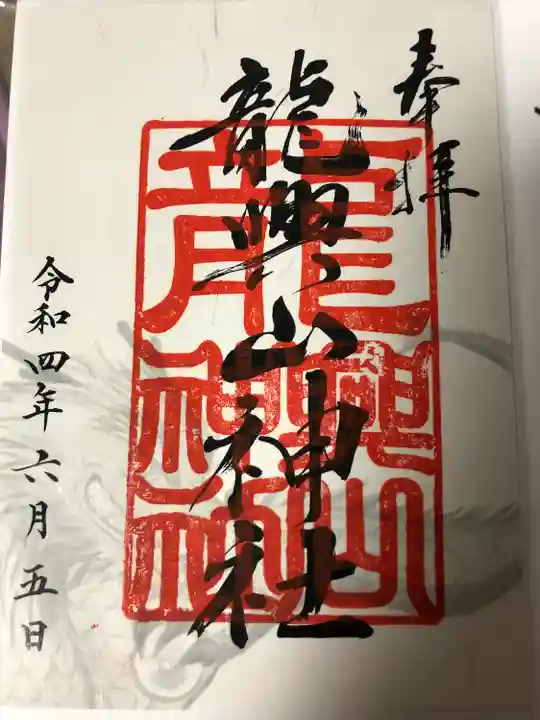 奉拝
龍興山神社
龍興山神社
令和四年六月五日